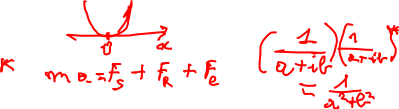 0 x
K m a = F_s + F_R + F_e
(1/(a+ib)) (1/(a+ib))* = 1/(a²+b²)